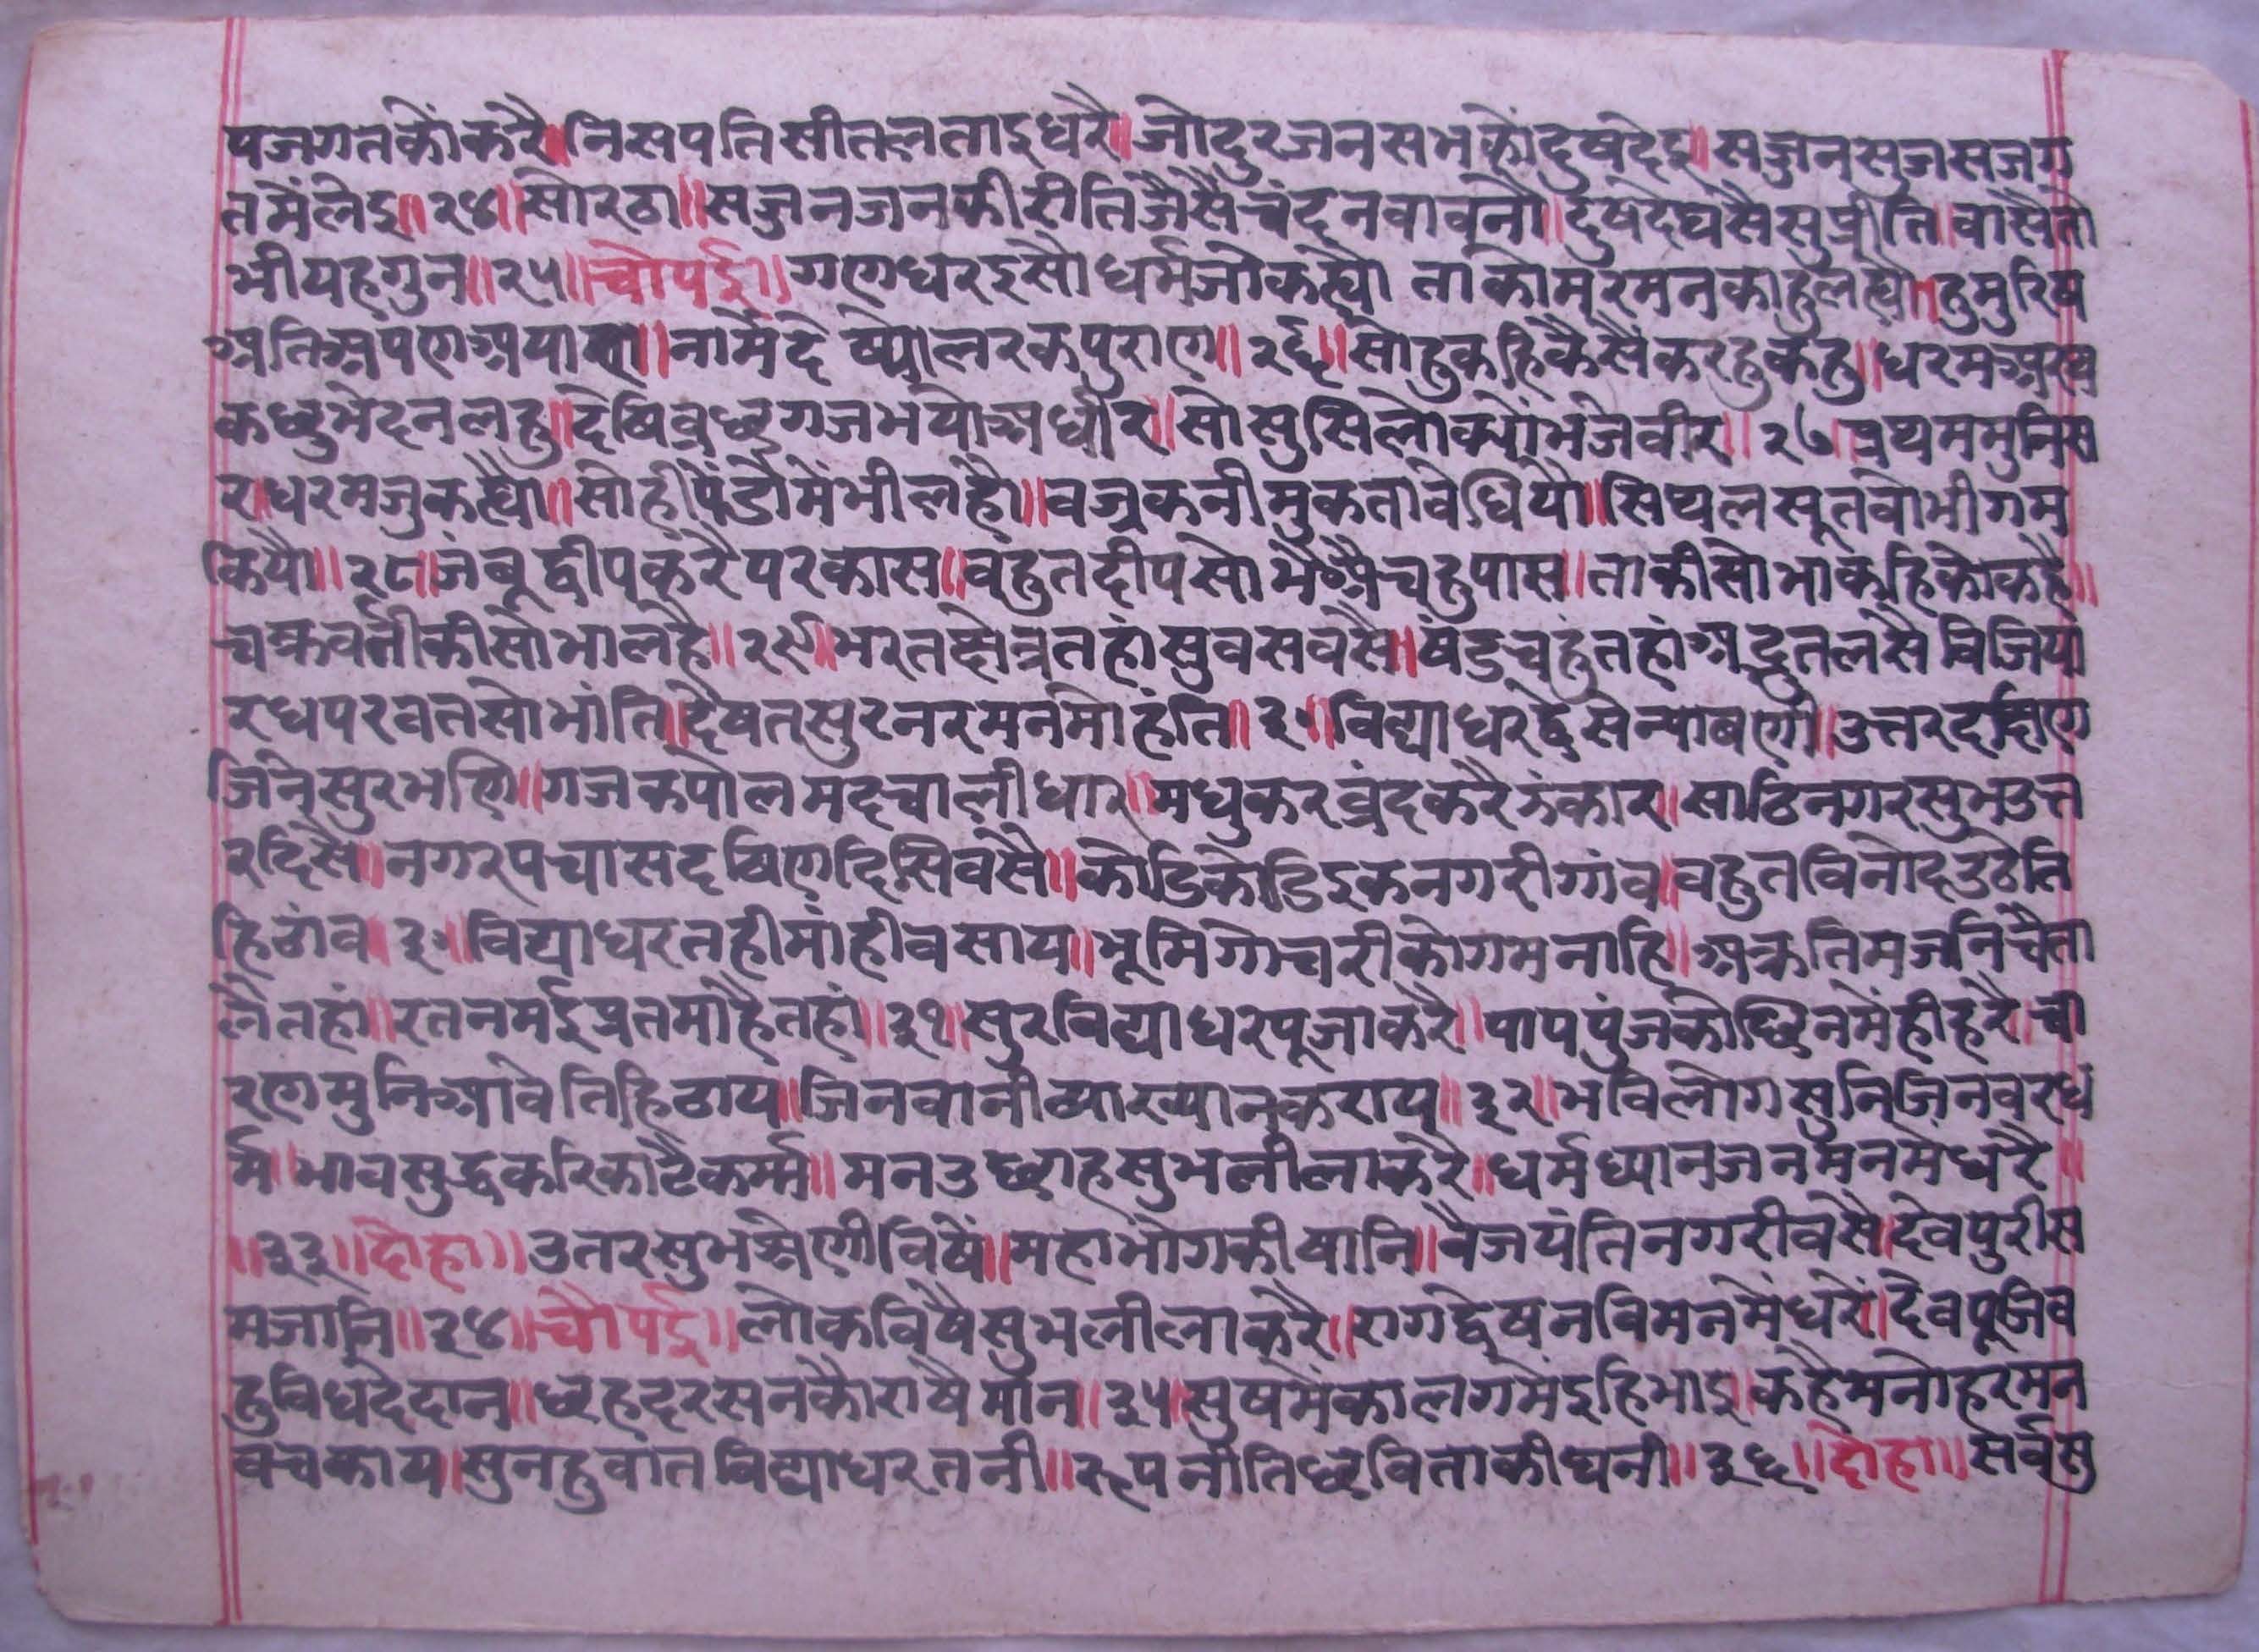 पजगतकोंकरै॥निसपतिसीतलताइधरै॥जोदुरजनसभकोंदुषदेइ॥सज्जनसुजसजग
तमैंलेइ॥२४॥सोरठा॥सज्जनजनकीरीतिजैसैंचंदनवावनो॥दुषदेघसैसुप्रीति॥वासैतो
भीयहगुन॥२५॥चोपई॥गणधरइसौधर्मजोकह्यो ताकोमूरमनकाहुलह्यो॥हुमुरिष
अतिअपणअया॥नामैंदे ष्यालरकपुराण॥२६॥सोहुकहिकैसैंकरहुकहु॥धरमअरथ
कछुभेदनलहु॥देषिव्रछगजभयोअधीर॥सोसुसिलोक्योंभजेवीर॥२७॥प्रथममुनिस
राधरमजुकह्यो॥सोहीपेंडोमेंभीलहौ॥वज्रकनीमुकतावेधियौ॥सिथलसूतवोभीगम
कियौ॥२८॥जंबूद्वीपकंरैपरकास॥वहुतदीपसोभैअैचहुपास॥ताकीसोभाकहिकोकहै॥
चक्रवर्तीकीसोभालहै॥२९॥भरतक्षेत्रतहांसुवसवसै॥षंडचहुंतहांअद्भुतलसै विजिया
रधपरवतसोभांति॥देषतसुरनरमनमोहंति॥३०॥विद्याधरद्वेसेन्याषणी॥उत्तरदक्षिण
जिनेसुरभणि॥गजकपोलमदचालीधार॥मधुकरव्रंदकरैझंकार॥साठिनगरसुभउत्त
रदिसै॥नगरपचासदषिणदिसिवसै॥कोडिकोडिइकनगरीगांव॥वहुतविनोदउठेति
हिठांव ३०॥विद्याधरतहीमांहीवसाय॥भूमिगोचरीकोगमनाहि॥अक्रतिमजनिचैता
लेतहां॥रतनमईप्रतमाहैतहां॥३१॥सुरविद्याधरपूजाकरै॥पापपुंजकोछिनमेंहीहरै॥चा
रणमुनिआवेतिहिठाय॥जिनवानीव्याख्यानकराय॥३२॥भविलोगसुनिजिनवरध
र्म॥भावसुद्धकरिकाटैकर्म्म॥मनउछाहसुभलीलाकरै॥धर्मध्यानजनमनमेंधरै॥
॥३३॥दोहा॥उतरसुभश्रेणीविषें॥महाभोगकीषानि॥वैजयंतिनगरीवसै॥देवपुरीस
मजानि॥३४॥चौपई॥लोकविषैसुभलीलाकरै॥रागद्वेषनविमनमेंधरें॥देवपूजिव
हुविधदेदान॥छहदरसनकौराषैमांन॥३५॥सुषमेंकालगमेंइहिभाइ॥कहैमनोहरमन
वचकाय॥सुनहुवातविद्याधरतनी॥रूपनीतिछविताकीघनी॥३६॥दोहा॥सर्वसु